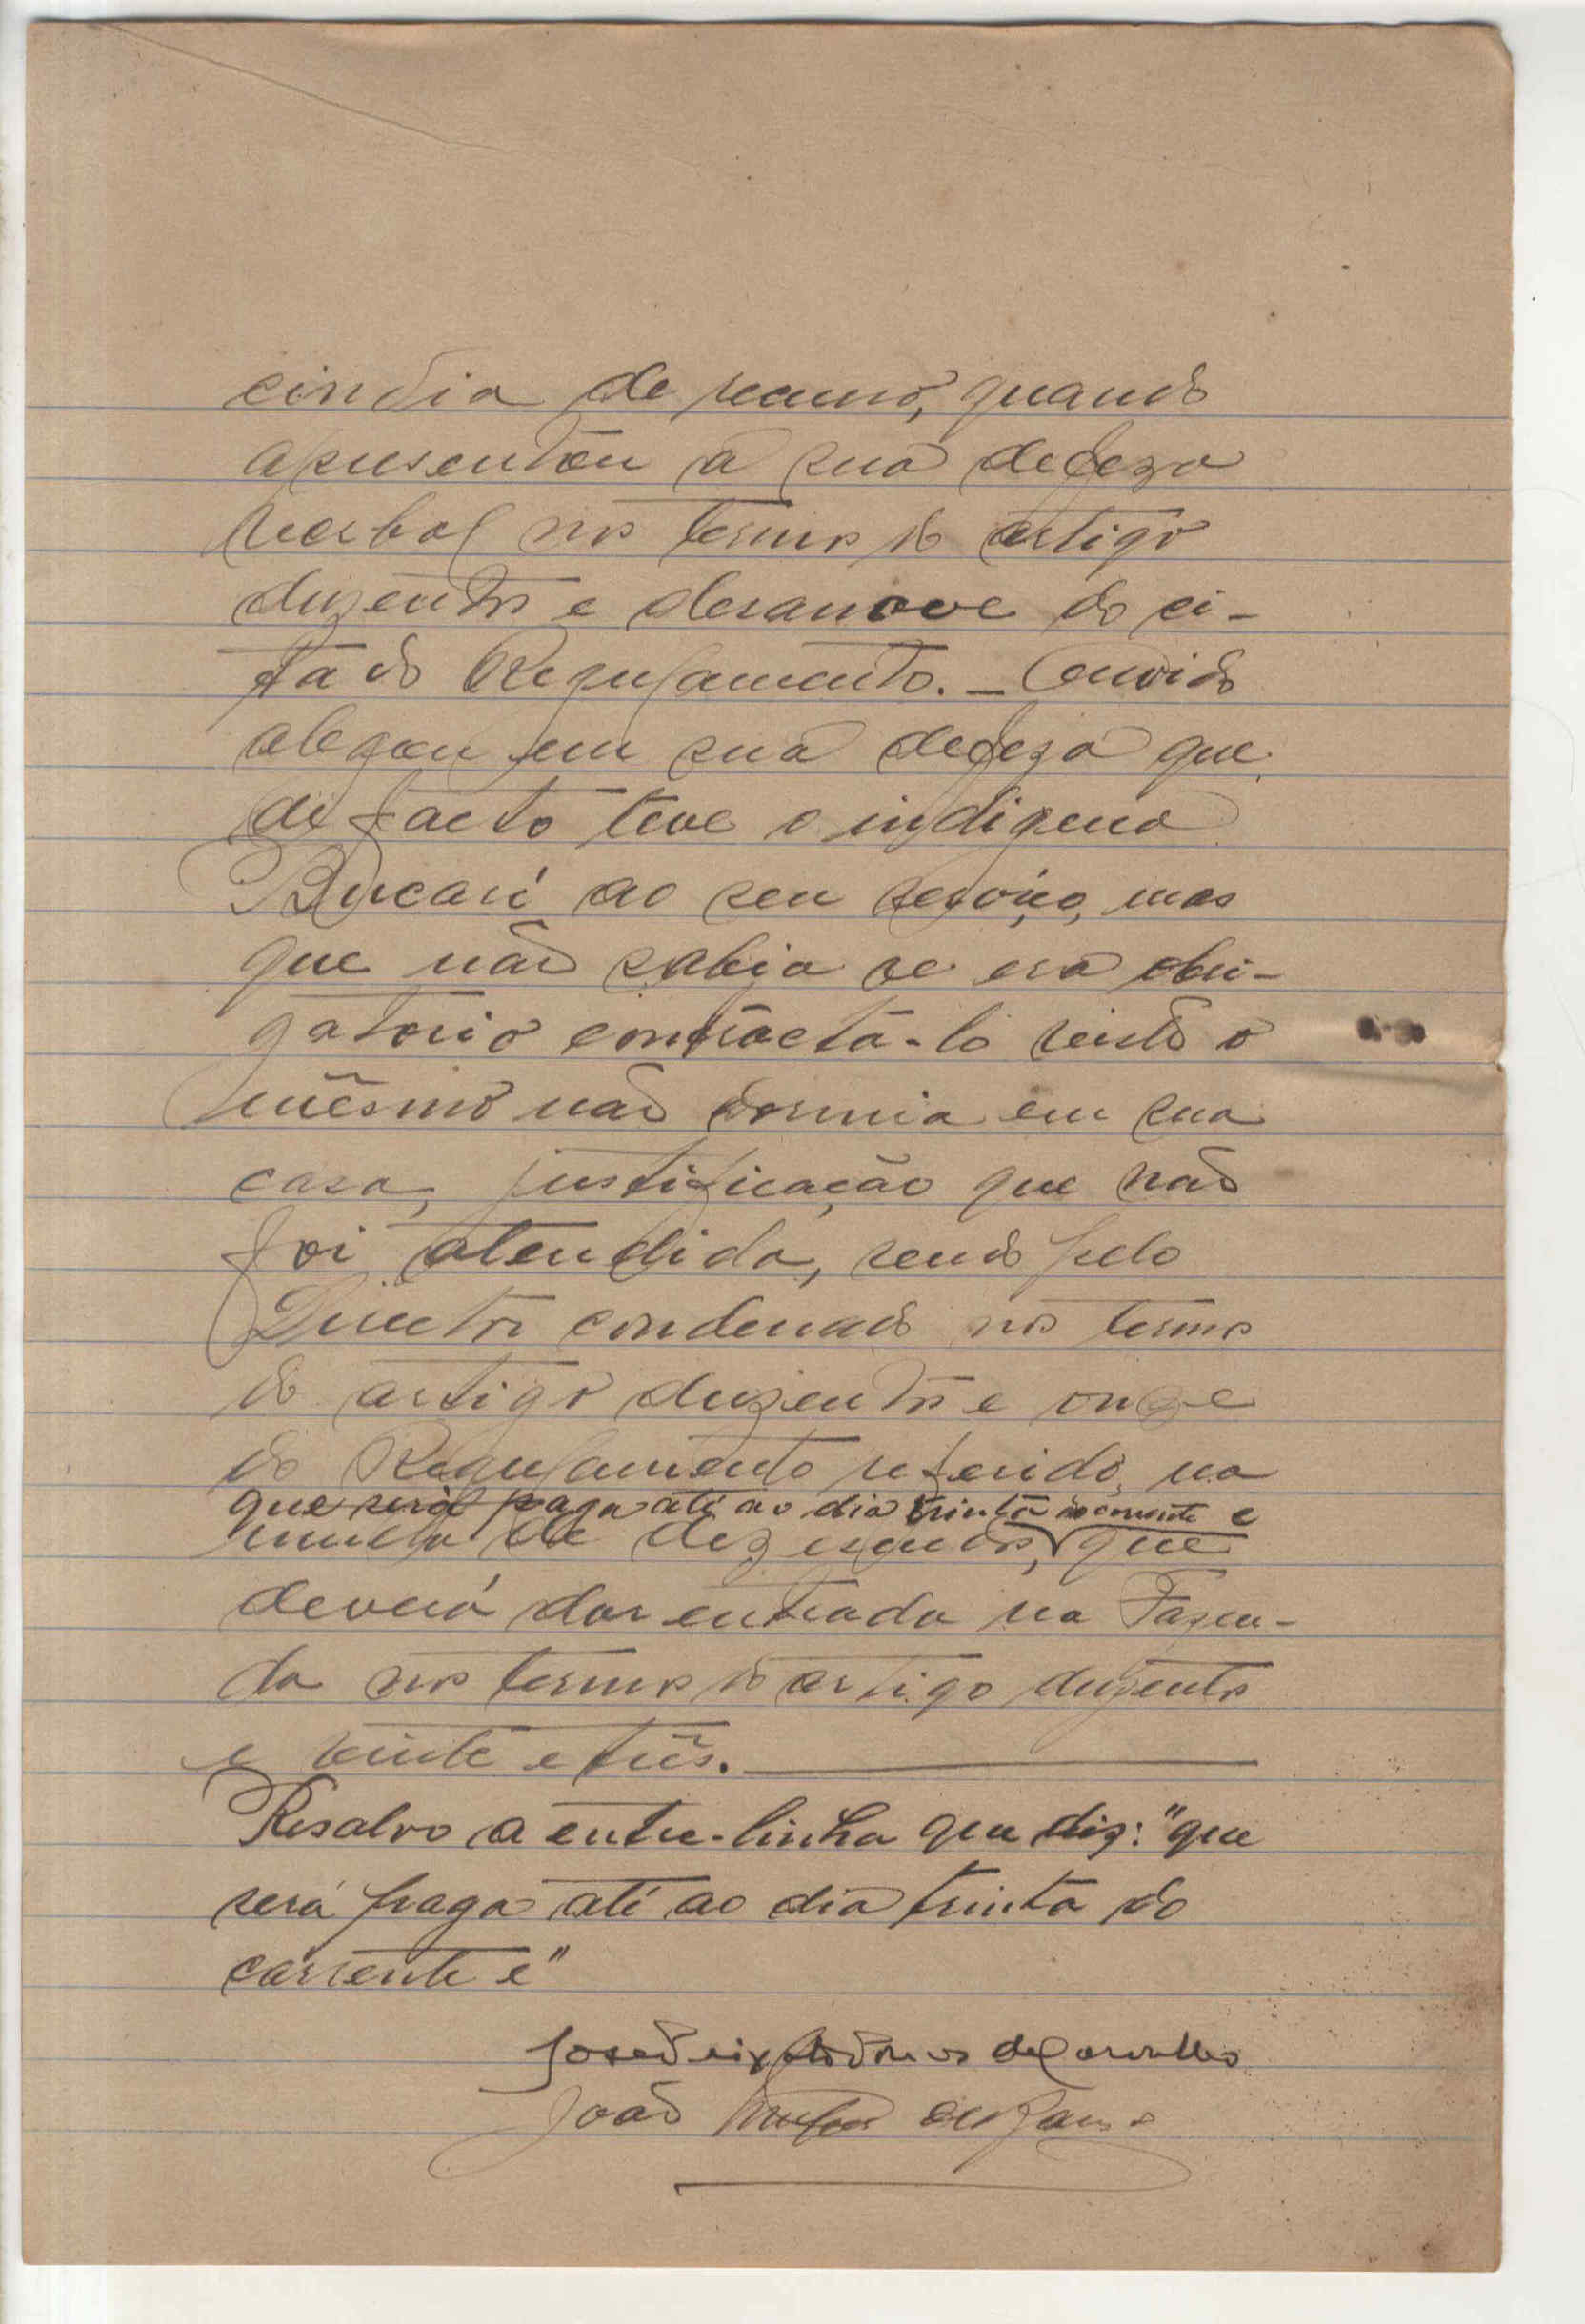 cindia de recurso, quando
apresentou a sua defeza
verbal nos termos do artigo
duzentos e desanove do ci-
tado Regulamento. — Ouvido
alegou em sua defeza que
de facto teve o indigena
Bucari ao seu serviço, mas
que não sabia se era obri-
gatorio contractá-lo visto o
mêsmo não dormia em sua
casa, justificação que não
foi atendida, sendo pelo
Director condenado nos termos
do artigo duzentos e onze
do Regulamento referido, na
que será paga até ao dia trinta do corrente e
multa de dez escudos, que
deverá dar entrada na Fazen-
da nos termos do artigo duzentos
e vinte e três.
Resalvo a entre-linha que diz: "que
será paga até ao dia trinta do
corrente e"
José de Carvalho
João